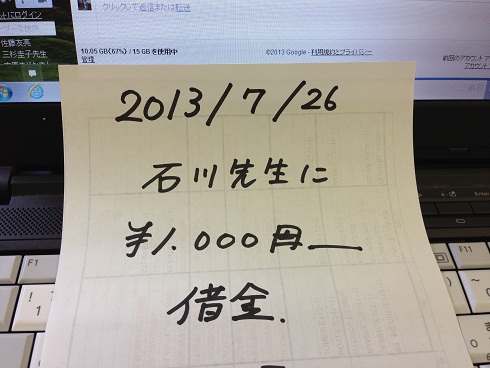 クリックして返信または転送
にログイン
佐藤友亮
三杉圭子先生
10.05 GB (67%) / 15 GB を使用中
管理
©2013 Google - 利用規約とプライバシー
前回のアカウント ア
アカウント
2013/7/26
石川先生に
¥1.000円
借金.
F1
F11
!
1